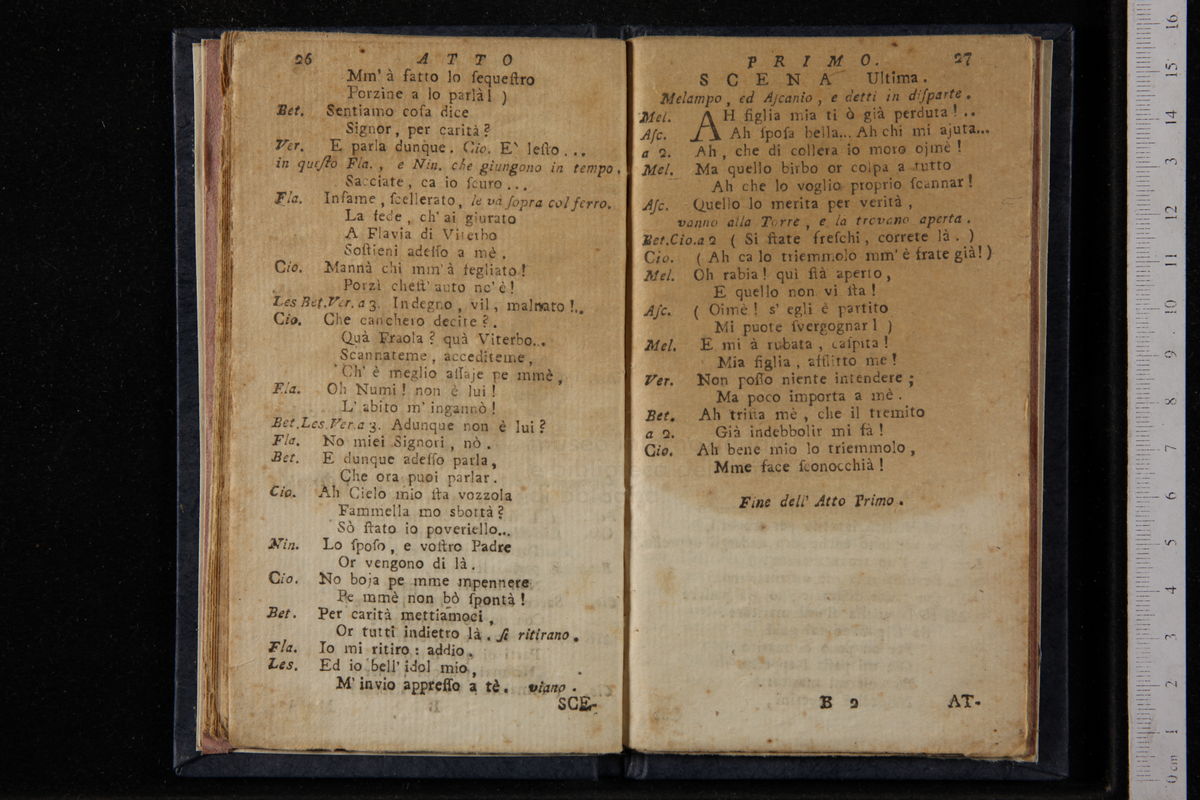 26 ATTO
Mm' à fatto lo ſequeſtro
Porzine a lo parlàl )
Bet. Sentiamo coſa dice
Signor, per carità?
Ver. E parla dunque. Cio. E' leſto...
in queſto Fla., e Nin. che giungono in tempo.
Sacciate, ca io ſcuro...
Fla. Infame, ſcellerato, le và ſopra col ferro.
La fede, ch' ai giurato
A Flavia di Viterbo
Soſtieni adeſſo a mè.
Cio. Mannà chi mm' à ſegliato!
Porzì cheſt' auto nc' è!
Les Bet. Ver. a 3. Indegno, vil, malnato!..
Cio. Che canchero decite?.
Quà Fraola? quà Viterbo...
Scannateme, accediteme,
Ch' è meglio aſſaje pe mmè,
Fla. Oh Numi! non è lui!
L' abito m' ingannò!
Bet. Les. Ver. a 3. Adunque non è lui?
Fla. No miei Signori, nò.
Bet. E dunque adeſſo parla,
Che ora puoi parlar.
Cio. Ah Cielo mio ſta vozzola
Fammella mo sbottà?
Sò ſtato io poveriello...
Nin. Lo ſpoſo, e voſtro Padre
Or vengono di là.
Cio. No boja pe mme mpennere
Pe mmè non bò ſpontà!
Bet. Per carità mettiamoci,
Or tutti indietro là. ſi ritirano.
Fla. Io mi ritiro: addio.
Les. Ed io bell' idol mio,
M' invio appreſſo a tè. viano.
SCE-
PRIMO. 27
SCENA Ultima.
Melampo, ed Aſcanio, e detti in diſparte.
Mel. AH figlia mia ti ò già perduta!..
Aſc. Ah ſpoſa bella... Ah chi mi ajuta...
a 2. Ah, che di collera io moro ojmè!
Mel. Ma quello birbo or colpa a tutto
Ah che lo voglio proprio ſcannar!
Aſc. Quello lo merita per verità,
vanno alla Torre, e la trovano aperta.
Bet. Cio. a 2 ( Si ſtate freſchi, correte là. )
Cio. ( Ah ca lo triemmolo mm' è frate già!)
Mel. Oh rabia! quì ſtà aperto,
E quello non vi ſta!
Aſc. ( Oimè! s' egli è partito
Mi puote ſvergognarl )
Mel. E mi à rubata, caſpita!
Mia figlia, afflitto me!
Ver. Non poſſo niente intendere;
Ma poco importa a mè.
Bet. Ah triſta mè, che il tremito
a 2. Già indebbolir mi fà!
Cio. Ah bene mio lo triemmolo,
Mme face ſconocchià!
Fine dell' Atto Primo.
B 2 AT-
0 cm 1 2 3 4 5 6 7 8 9 10 11 12 13 14 15 16